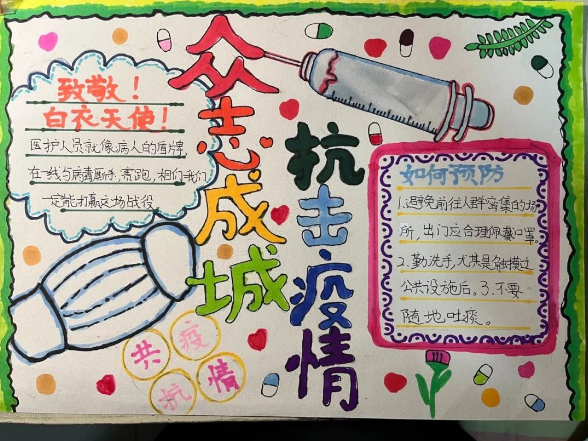 众志成城
抗击疫情
致敬！
白衣天使！
医护人员就像病人的盾牌
在一线与病毒厮杀、赛跑，相信我们
一定能打赢这场战役
如何预防
1.避免前往人群密集的场
所，出门应合理佩戴口罩。
2.勤洗手，尤其是触摸过
公共设施后。3.不要
随地吐痰。
共疫
抗情